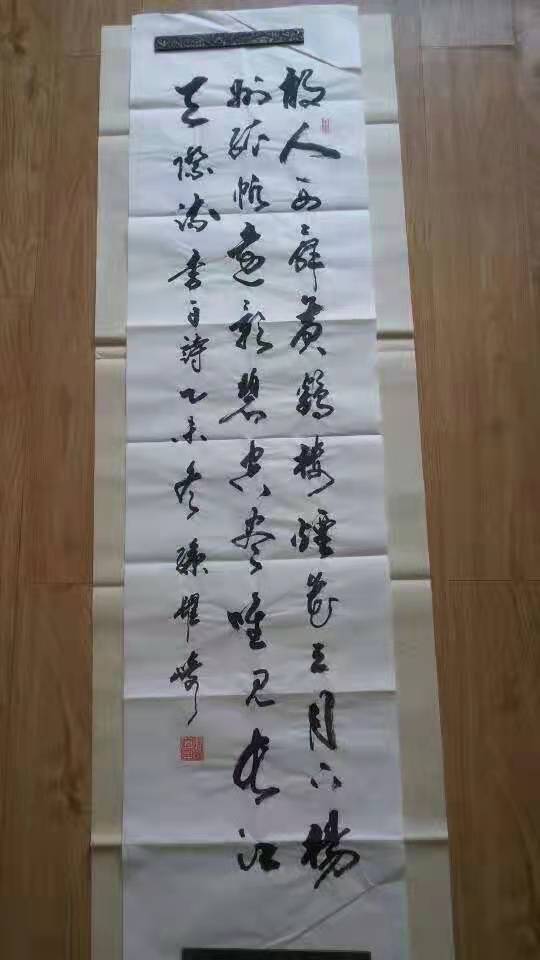 故人西辭黃鶴樓煙花三月下揚
州孤帆遠影碧空盡唯見長江
天際流李白詩乙未冬孫